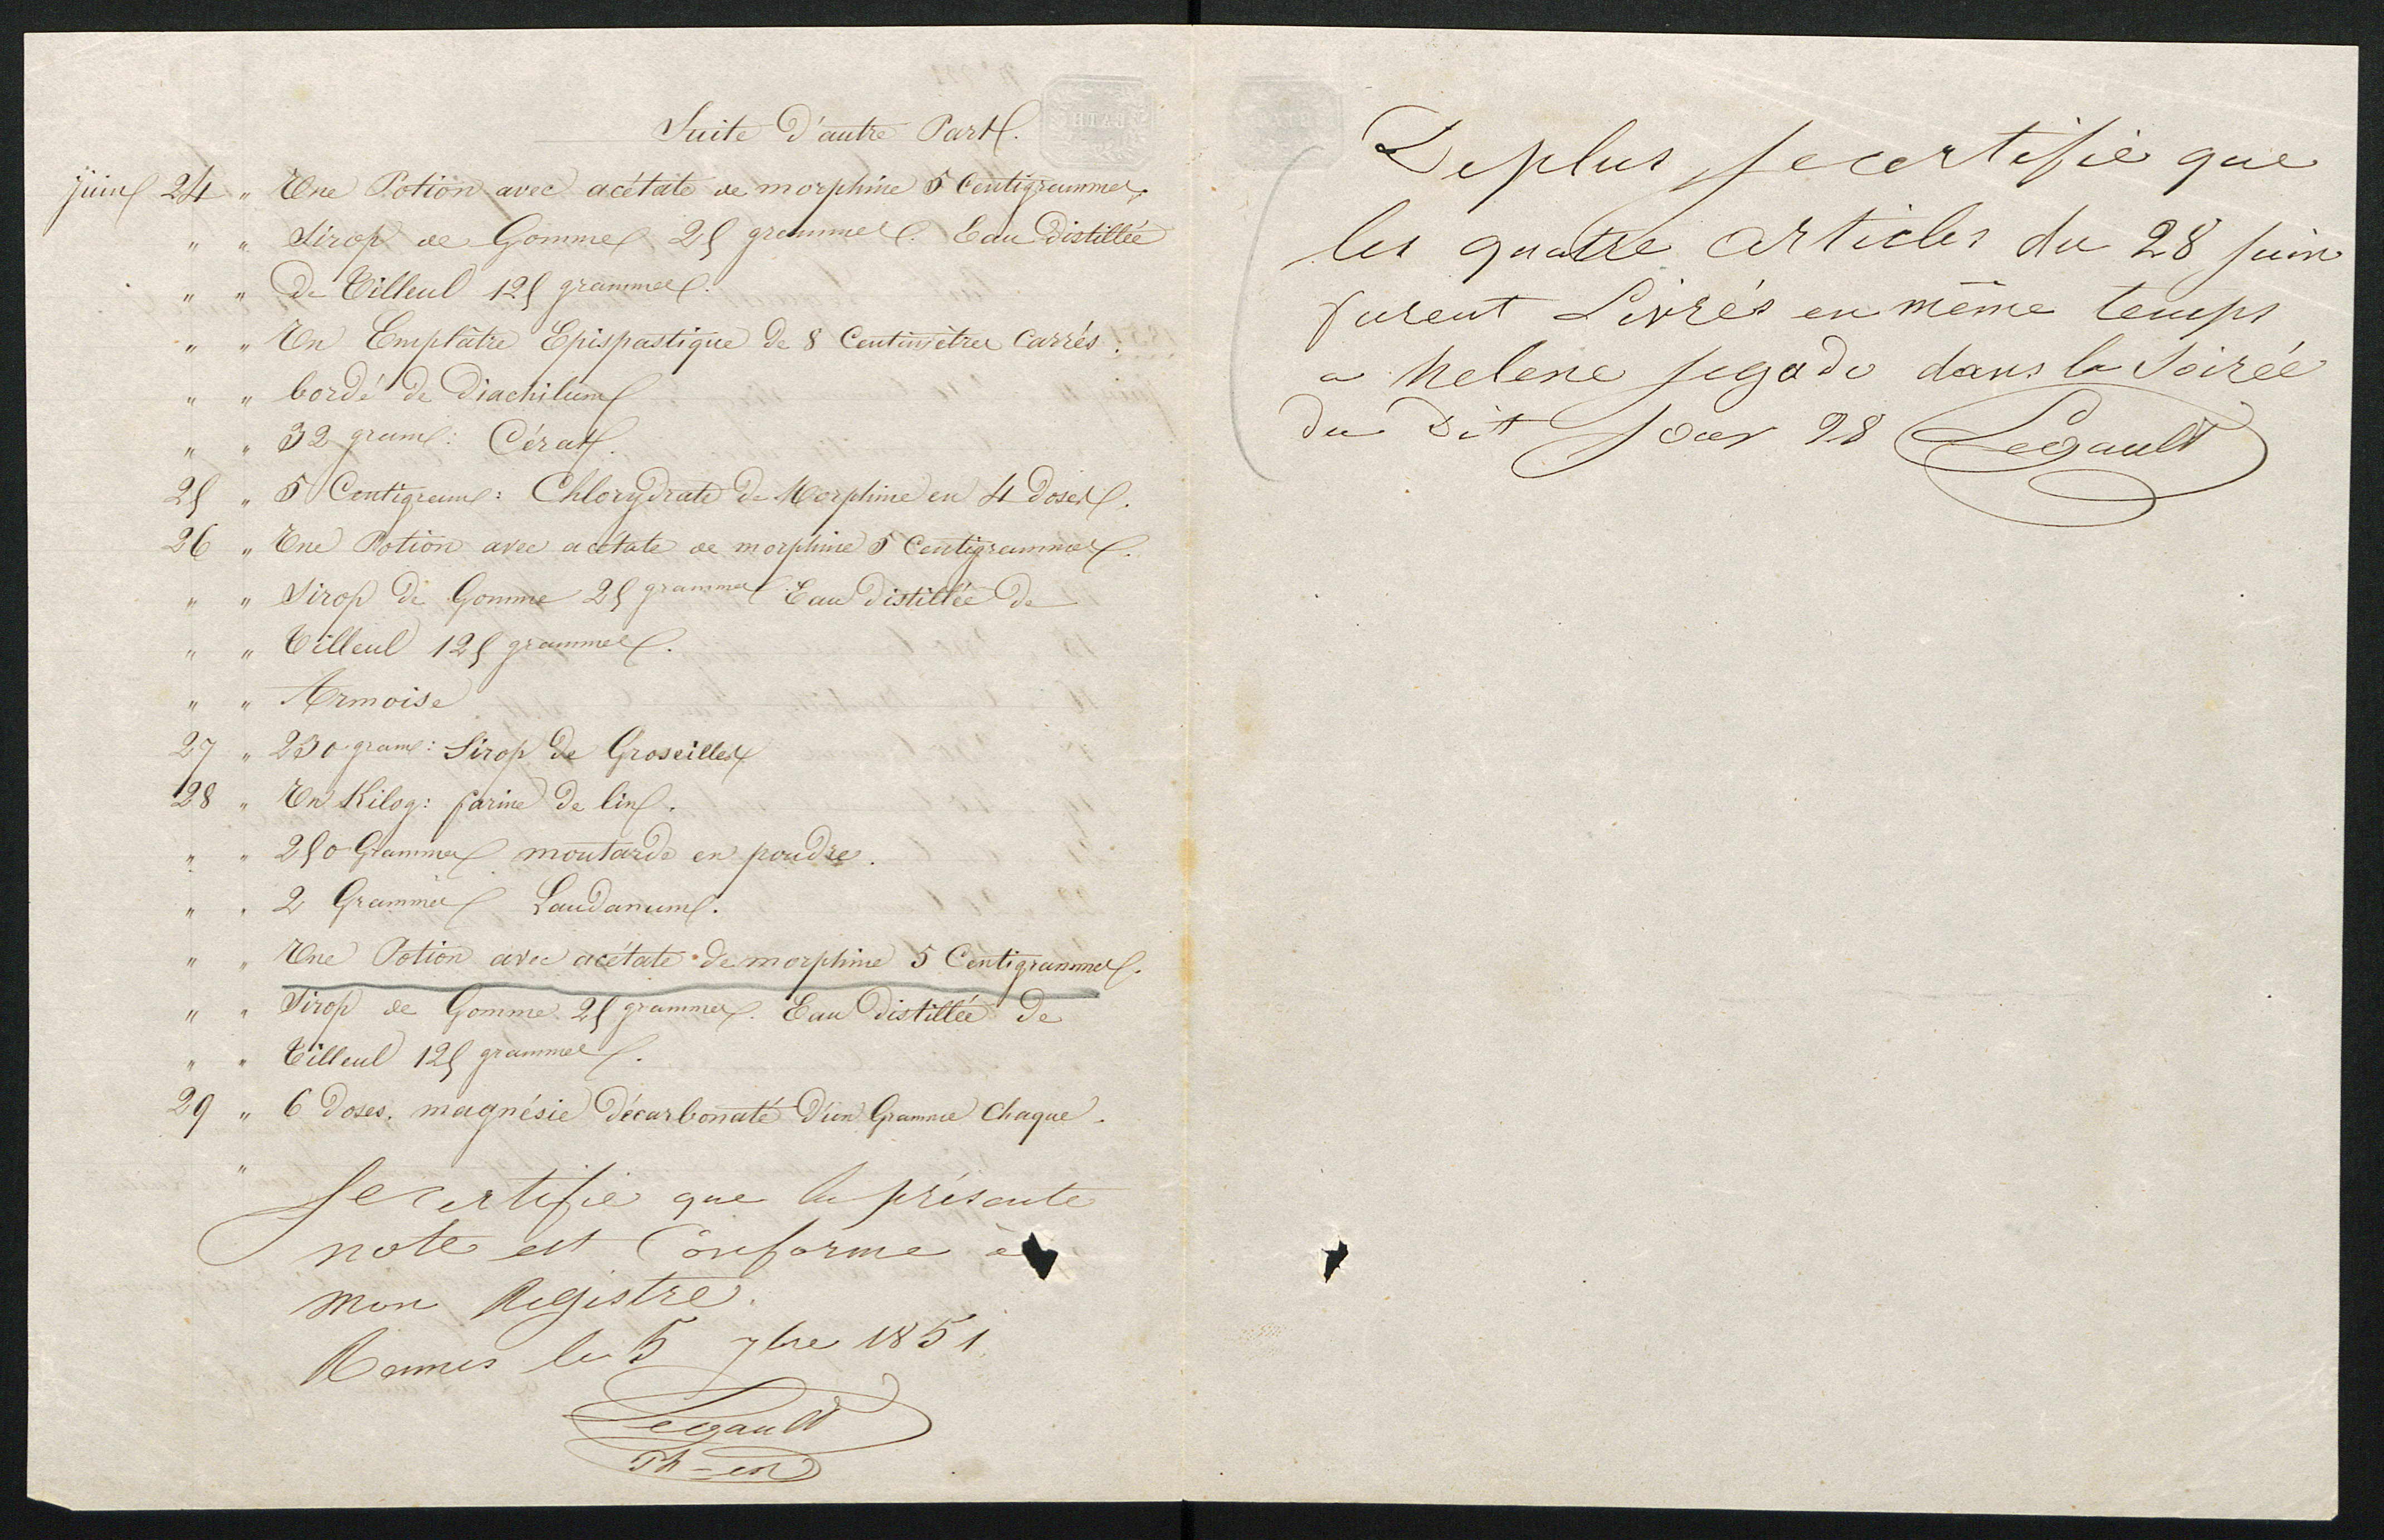 Suite d'autre Part.
juin 24 " Une Potion avec acétate de morphine 5 Centigrammes.
" " Sirop de Gomme 25 grammes. Eau distillée
" " de Tilleul 125 grammes.
" " Un Emplâtre Epispastique de 8 Centimètres Carrés.
" " bordé de Diachilum
" " 32 gram: Cérat.
25 " 5 Centigram: Chlorydrate de Morphine en 4 doses.
26 " Une Potion avec acétate de morphine 5 Centigrammes.
" " Sirop de Gomme 25 grammes Eau distillée de
" " Tilleul 125 grammes.
" " Armoise
27 " 230 gram: Sirop de Groseilles
28 " Un Kilog: farine de lin.
" " 250 Grammes moutarde en poudre.
" " 2 Grammes Laudanum.
" " Une Potion avec acétate de morphine 5 Centigrammes.
" " Sirop de Gomme 25 grammes. Eau distillée de
" " Tilleul 125 grammes.
29 " 6 doses. magnésie décarbonaté d'un Gramme Chaque.
"
Je certifie que la présente
note est Conforme à
mon Registre.
Rennes le 5 7bre 1851
Legault
Ph-en
De plus je certifie que
les quatre articles du 28 juin
furent Livrés en même temps
a helene jegado dans la soirée
du Dit jour 28 Legault